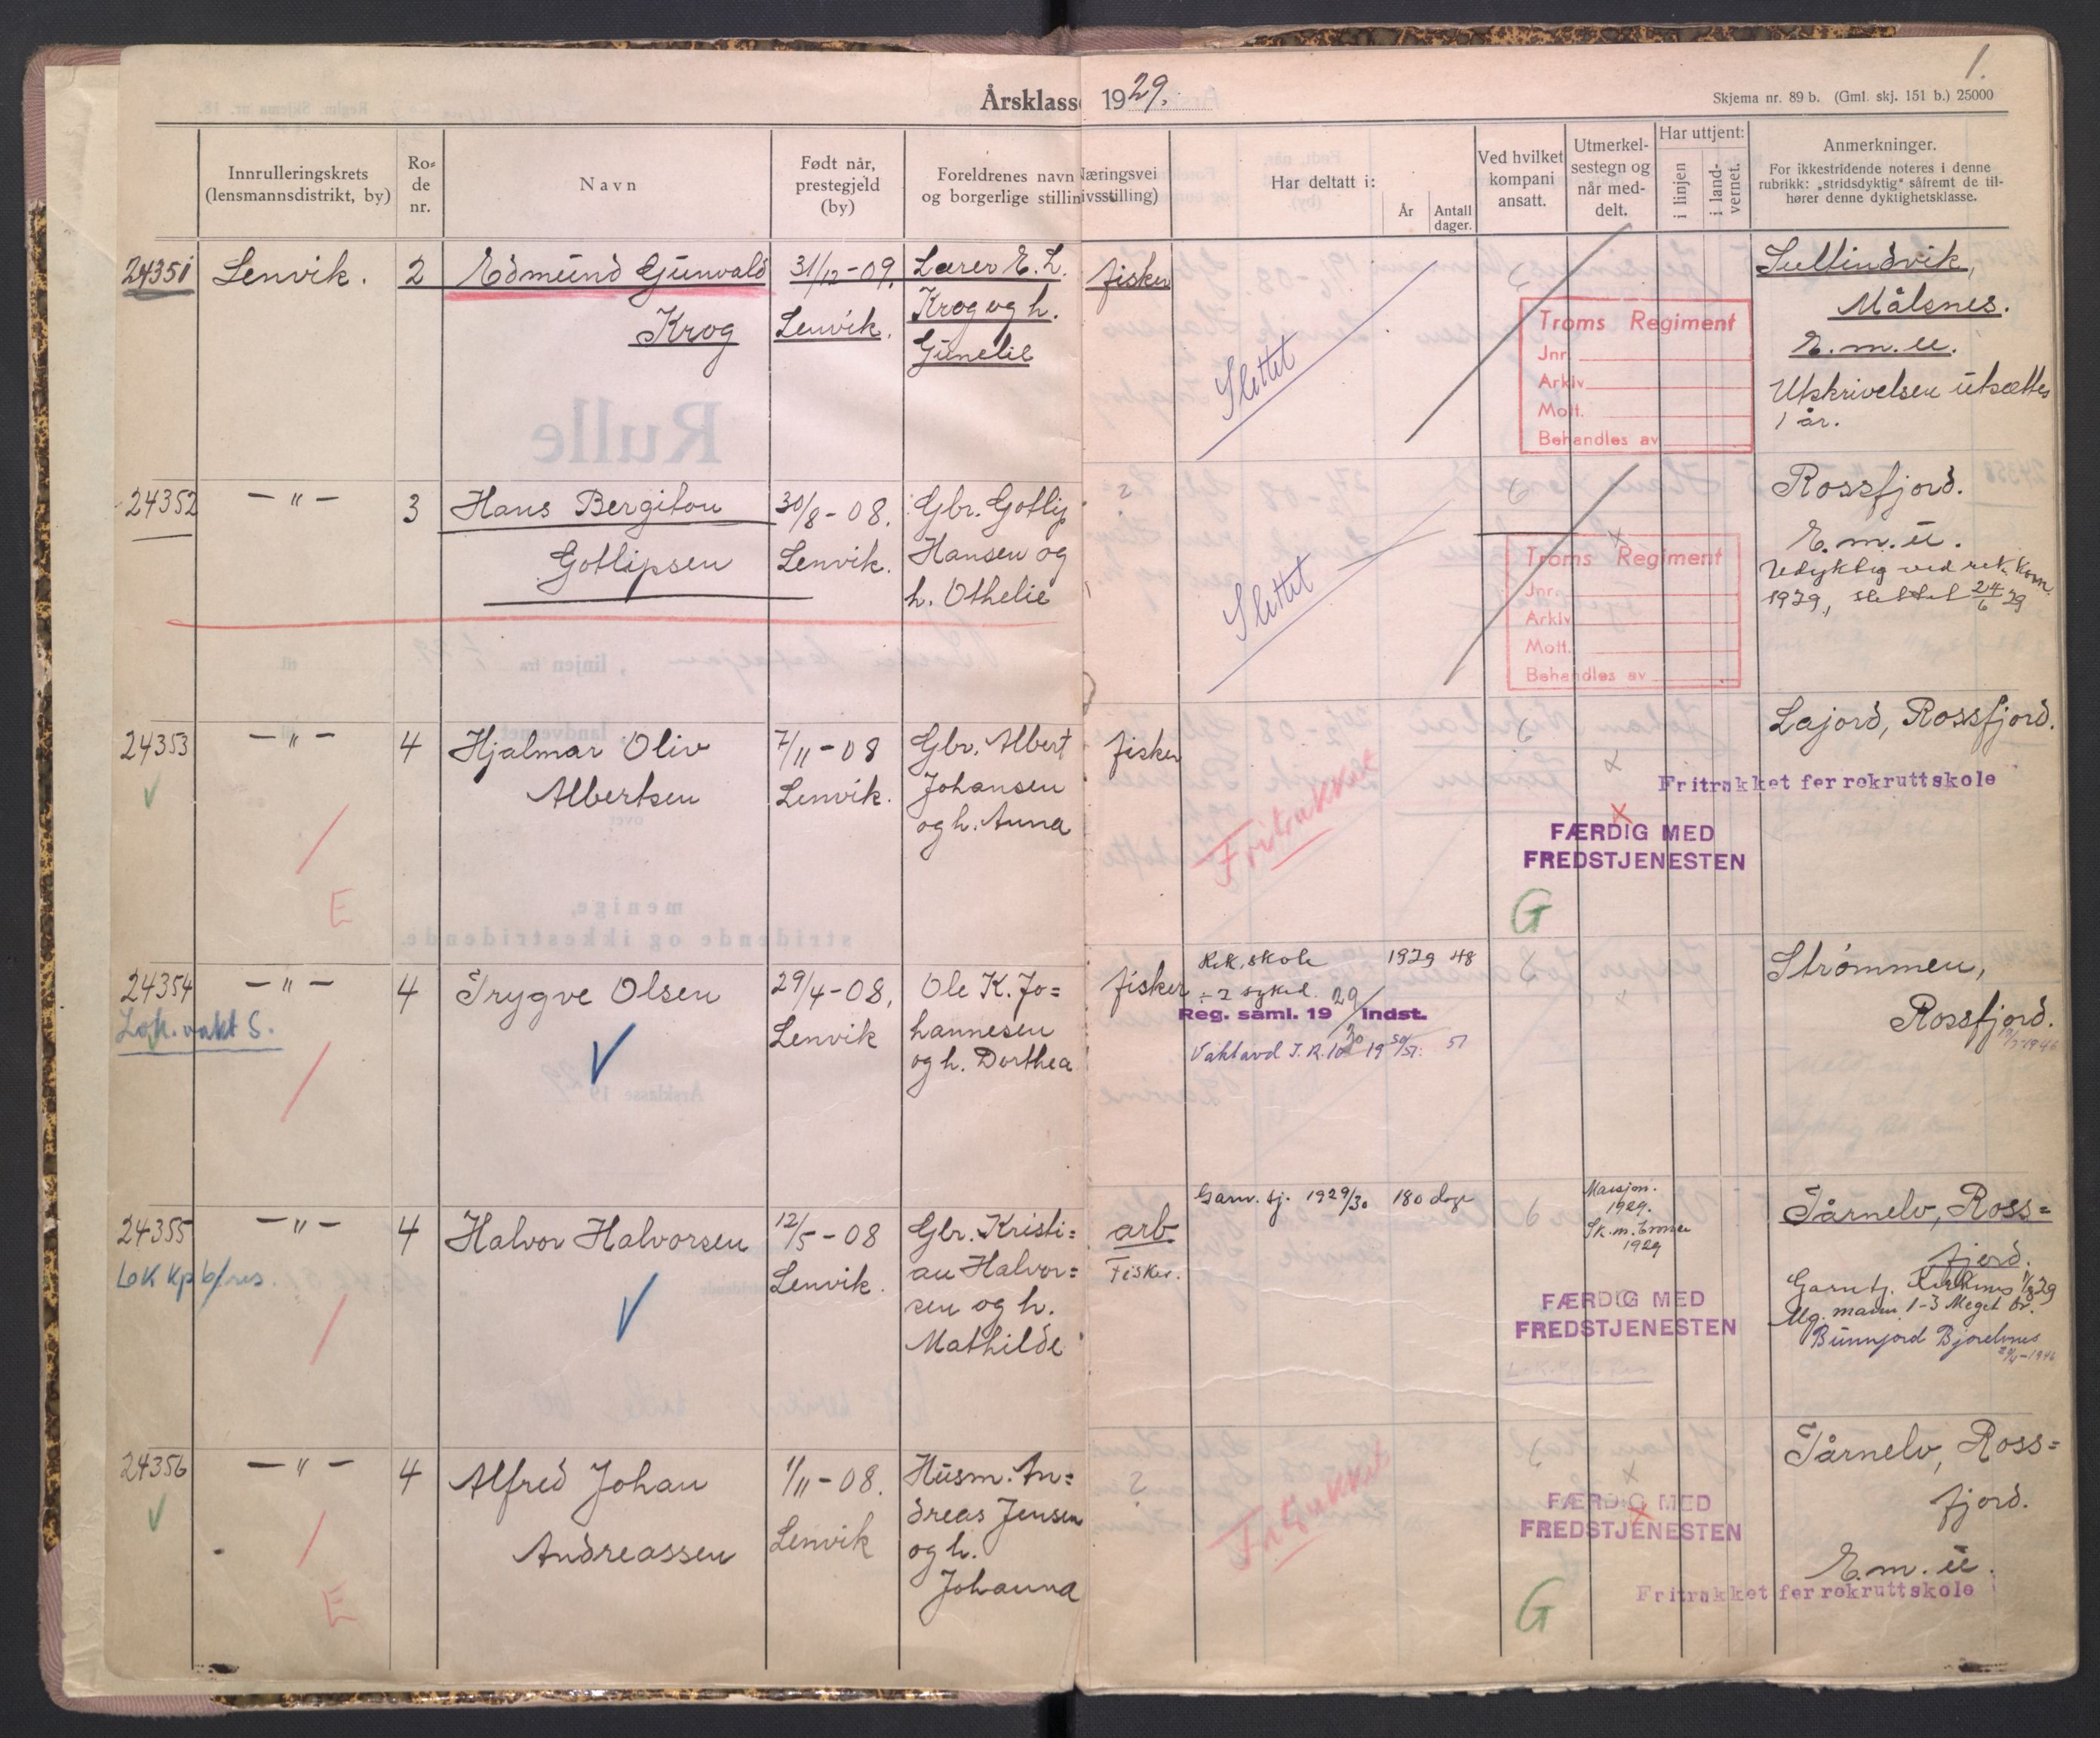 1.
Årsklasse 1929.
Skjema nr. 89 b. (Gml. skj. 151 b.) 25000
Innrulleringskrets (lensmannsdistrikt, by)
Ro-de nr.
Navn
Født når, prestegjeld (by)
Foreldrenes navn og borgerlige stillin
Næringsvei
ivsstilling)
Har deltatt i:
År
Antall dager.
Ved hvilket kompani ansatt.
Utmerkel-sestegn og når med-delt.
Har uttjent:
i linjen
i land-vernet.
Anmerkninger.
For ikkestridende noteres i denne rubrikk: „stridsdyktig" såfremt de til-hører denne dyktighetsklasse.
24351 Lenvik. 2 Edmund Gunvald 31/12-09. Lærer E. L. fisker
Krog Lenvik. Krog og h.
Gunelie
Slettet
6
Troms Regiment
Jnr.
Arkiv
Mott.
Behandles av
Sultindvik,
Målsnes.
E.m.u.
Utskrivelsen utsættes
1 år.
24352 — " — 3 Hans Bergiton 30/8-08. Gbr. Gotlip
Gotlipsen Lenvik. Hansen og
h. Othelie
Slettet
6
Troms Regiment
Jnr.
Arkiv
Mott.
Behandles av
Rossfjord.
E.m.u.
Udyktig ved rek. kom.
1929, slettet 24/6 29
24353 — " — 4 Hjalmar Oliv 7/11-08 Gbr. Albert fisker
Albertsen Lenvik. Johansen
og h. Anna
E
Fritrukket
6
Lajord, Rossfjord.
Fritrukket fer rekruttskole
FÆRDIG MED
FREDSTJENESTEN
G
24354 — " — 4 Trygve Olsen 29/4-08, Ole K. Jo= fisker
Lok. vakt S. Lenvik hannesen
og h. Dorthea
Rek. skole 1929 48
÷ 2 syked.
Reg. saml. 19 29/30 indst.
Vaktavd I.R.16 19 50/51: 51
6
Strømmen,
Rossfjord.
24355 — " — 4 Halvor Halvorsen 12/5-08 Gbr. Kristi= arb
Lok Kp b/res. Lenvik. an Halvor= Fisker.
sen og h.
Mathilde
Garn. tj. 1929/30 180 dage
6
1929.
Sk.m.
1929
FÆRDIG MED
FREDSTJENESTEN
Tårnelv, Ross=
fjord.
Garntj. Kirkenes 1/8 29
Mg. mann 1-3 Meget br.
Bunnjord Bjorelvnes
24356 — " — 4 Alfred Johan 1/11-08. Husm. An= ?
Andreassen Lenvik dreas Jensen
og h.
Johanna
E
Fritrukket
6
FÆRDIG MED
FREDSTJENESTEN
G
Tårnelv, Ross=
fjord.
E.m.u.
Fritrukket fer rekruttskole